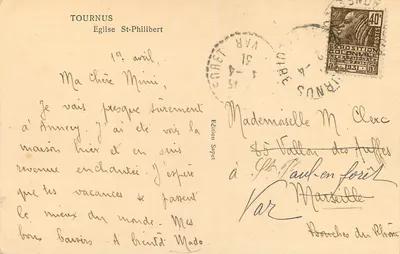 TOURNUS
Eglise St-Philibert
1er avril.
Ma chère Mimi,
Je vais presque sûrement
à Annecy. J'ai été voir la
maison hier et en suis
revenue enchantée. J'espère
que tes vacances se passent
le mieux du monde. Mes
bons baisers. A bientôt Mado
Edition Sepet
40c
EXPOSITION
COLONIALE
Mademoiselle M. Clerc
85 Vallon des Auffes
à St Paul-en-forêt
Marseille
Var
Bouches du Rhône
1-4
31
VAR
TOURNUS